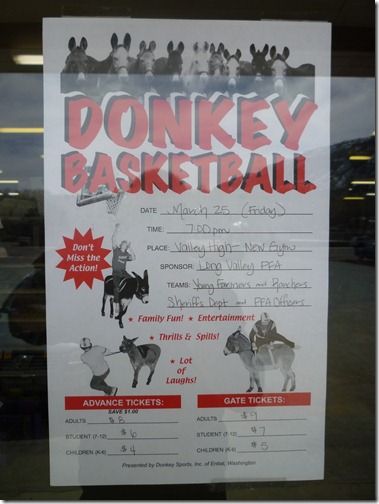 DONKEY
BASKETBALL
DATE March 25 (Friday)
TIME: 7:00pm
PLACE: Valley High - New Gym
SPONSOR: Long Valley FFA
TEAMS: Young Farmers and Ranchers
Sheriffs Dept and FFA Officers
Don't
Miss the
Action!
★ Family Fun! ★ Entertainment
★ Thrills & Spills!
★ Lot
of
Laughs!
ADVANCE TICKETS:
SAVE $1.00
ADULTS $8
STUDENT (7-12) $6
CHILDREN (K-6) $4
GATE TICKETS:
ADULTS $9
STUDENT (7-12) $7
CHILDREN (K-6) $5
Presented by Donkey Sports, Inc. of Entiat, Washington